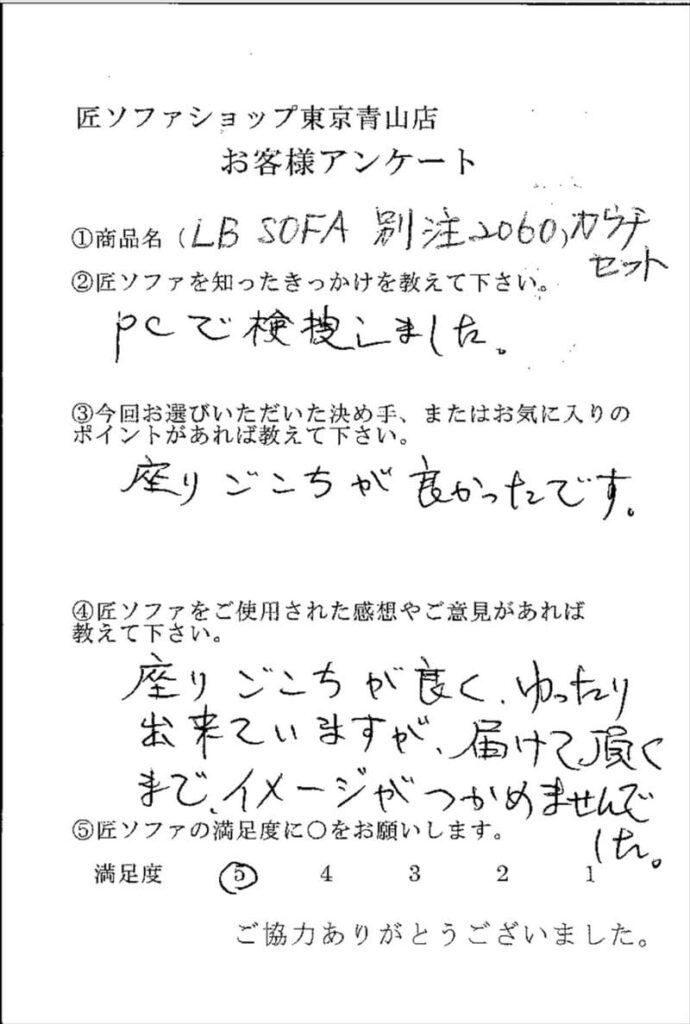 匠ソファショップ東京青山店
お客様アンケート
①商品名（LB SOFA 別注2060）カウチ
セット
②匠ソファを知ったきっかけを教えて下さい。
PCで検捜しました。
③今回お選びいただいた決め手、またはお気に入りの
ポイントがあれば教えて下さい。
座りごこちが良かったです。
④匠ソファをご使用された感想やご意見があれば
教えて下さい。
座りごこちが良く、ゆったり
出来ていますが、届けて頂く
まで、イメージがつかめませんで
した。
⑤匠ソファの満足度に○をお願いします。
満足度 5 4 3 2 1
ご協力ありがとうございました。